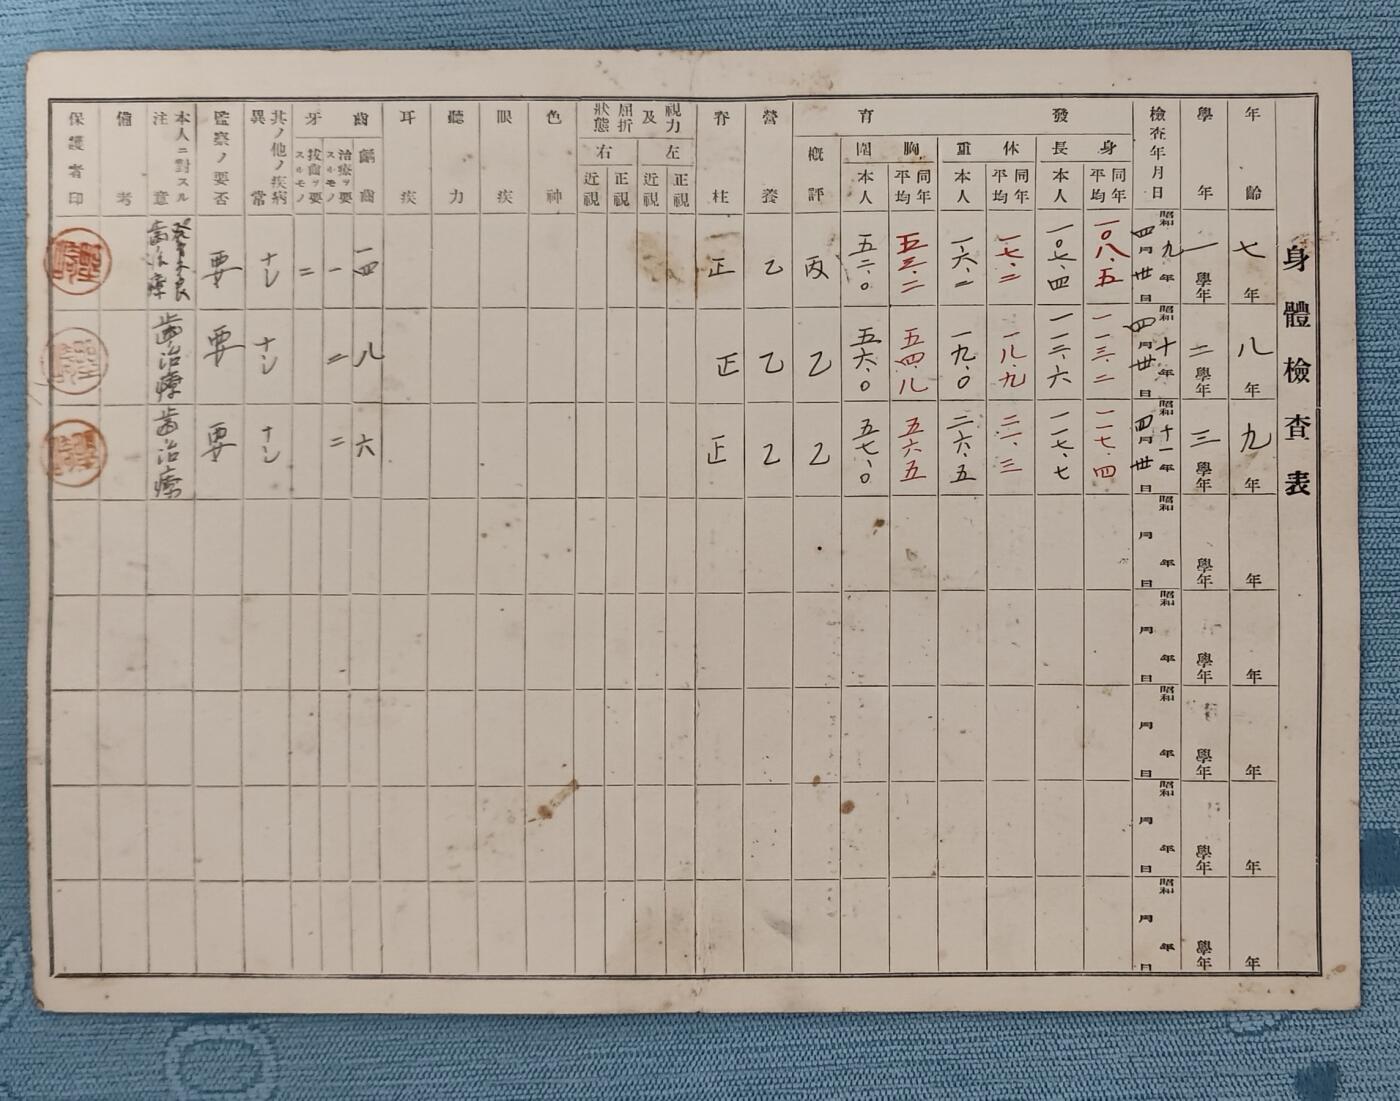 身體檢査表
年齡
學年
檢査年月日
發育
身長
同年平均
本人
体重
同年平均
本人
胸圍
同年平均
本人
概評
營養
脊柱
視力及屈折狀態
左
正視
近視
右
正視
近視
色神
眼疾
聽力
耳疾
齒牙
齲齒
治療ヲ要スルモノ
拔齒ヲ要スルモノ
其ノ他ノ疾病異常
監察ノ要否
本人ニ對スル注意
備考
保護者印
七年
一學年
昭和九年四月廿日
一〇八、五
一〇七、四
一七、二
一六、二
五三、二
五二、〇
丙
乙
正
一四
一
二
ナシ
要
發育不良
歯治療
八年
二學年
昭和十年四月廿日
一一三、二
一一二、六
一八、九
一九、〇
五四、八
五六、〇
乙
乙
正
八
二
ナシ
要
歯治療
九年
三學年
昭和十一年四月廿日
一一七、四
一一七、七
二一、三
二六、五
五六、五
五七、〇
乙
乙
正
六
二
ナシ
要
歯治療
年
學年
昭和 年 月 日
年
學年
昭和 年 月 日
年
學年
昭和 年 月 日
年
學年
昭和 年 月 日
年
學年
昭和 年 月 日